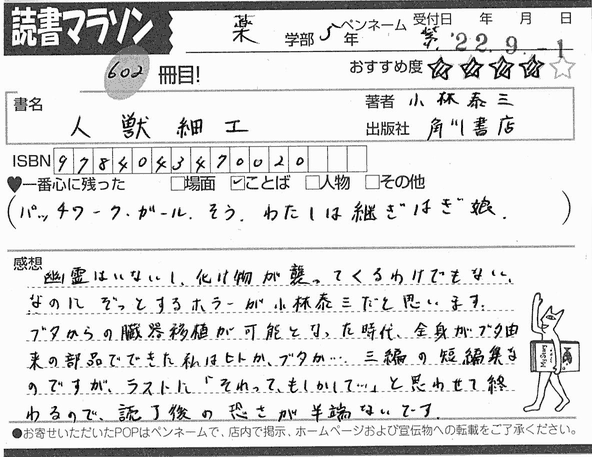 読書マラソン
薬 学部 5年 ペンネーム 受付日 年 月 日
'22.9.-1
602 冊目!
おすすめ度 ★★★★☆
書名 人獣細工
著者 小林泰三
出版社 角川書店
ISBN 9784043470020
♥一番心に残った □場面 ☑ことば □人物 □その他
(パッチワーク・ガール. そう. わたしは継ぎはぎ娘.)
感想
幽霊はいないし、化け物が襲ってくるわけでもない、
なのに ぞっとするホラーが小林泰三だと思います。
ブタからの臓器移植が可能となった時代、全身がブタ由
来の部品でできた私はヒトか、ブタか…. 三編の短編集な
のですが、ラストに「それって、もしかして…」と思わせて終
わるので、読了後の恐さが半端ないです.
●お寄せいただいたPOPはペンネームで、店内で掲示、ホームページおよび宣伝物への転載をご了承ください。